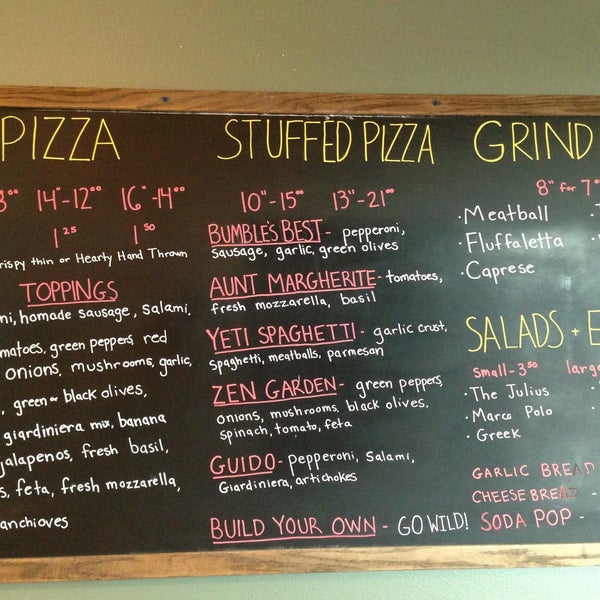 PIZZA
14"-12⁰⁰ 16"-14⁰⁰
1²⁵ 1⁵⁰
crispy thin or Hearty Hand Thrown
TOPPINGS
homade sausage, salami,
green peppers, red
onions, mushrooms, garlic,
green or black olives,
giardiniera mix, banana
jalapenos, fresh basil,
feta, fresh mozzarella,
anchioves
STUFFED PIZZA
10"-15⁰⁰ 13"-21⁰⁰
BUMBLE'S BEST- pepperoni,
sausage, garlic, green olives
AUNT MARGHERITE- tomatoes,
fresh mozzarella, basil
YETI SPAGHETTI- garlic crust,
spaghetti, meatballs, parmesan
ZEN GARDEN- green peppers,
onions, mushrooms, black olives,
spinach, tomato, feta
GUIDO- pepperoni, Salami,
Giardiniera, artichokes
BUILD YOUR OWN - GO WILD!
GRIND
8" for 7
·Meatball
·Fluffaletta
·Caprese
SALADS +
small-3⁵⁰ large
·The Julius
·Marco Polo
·Greek
GARLIC BREAD
CHEESE BREAD -
SODA POP -